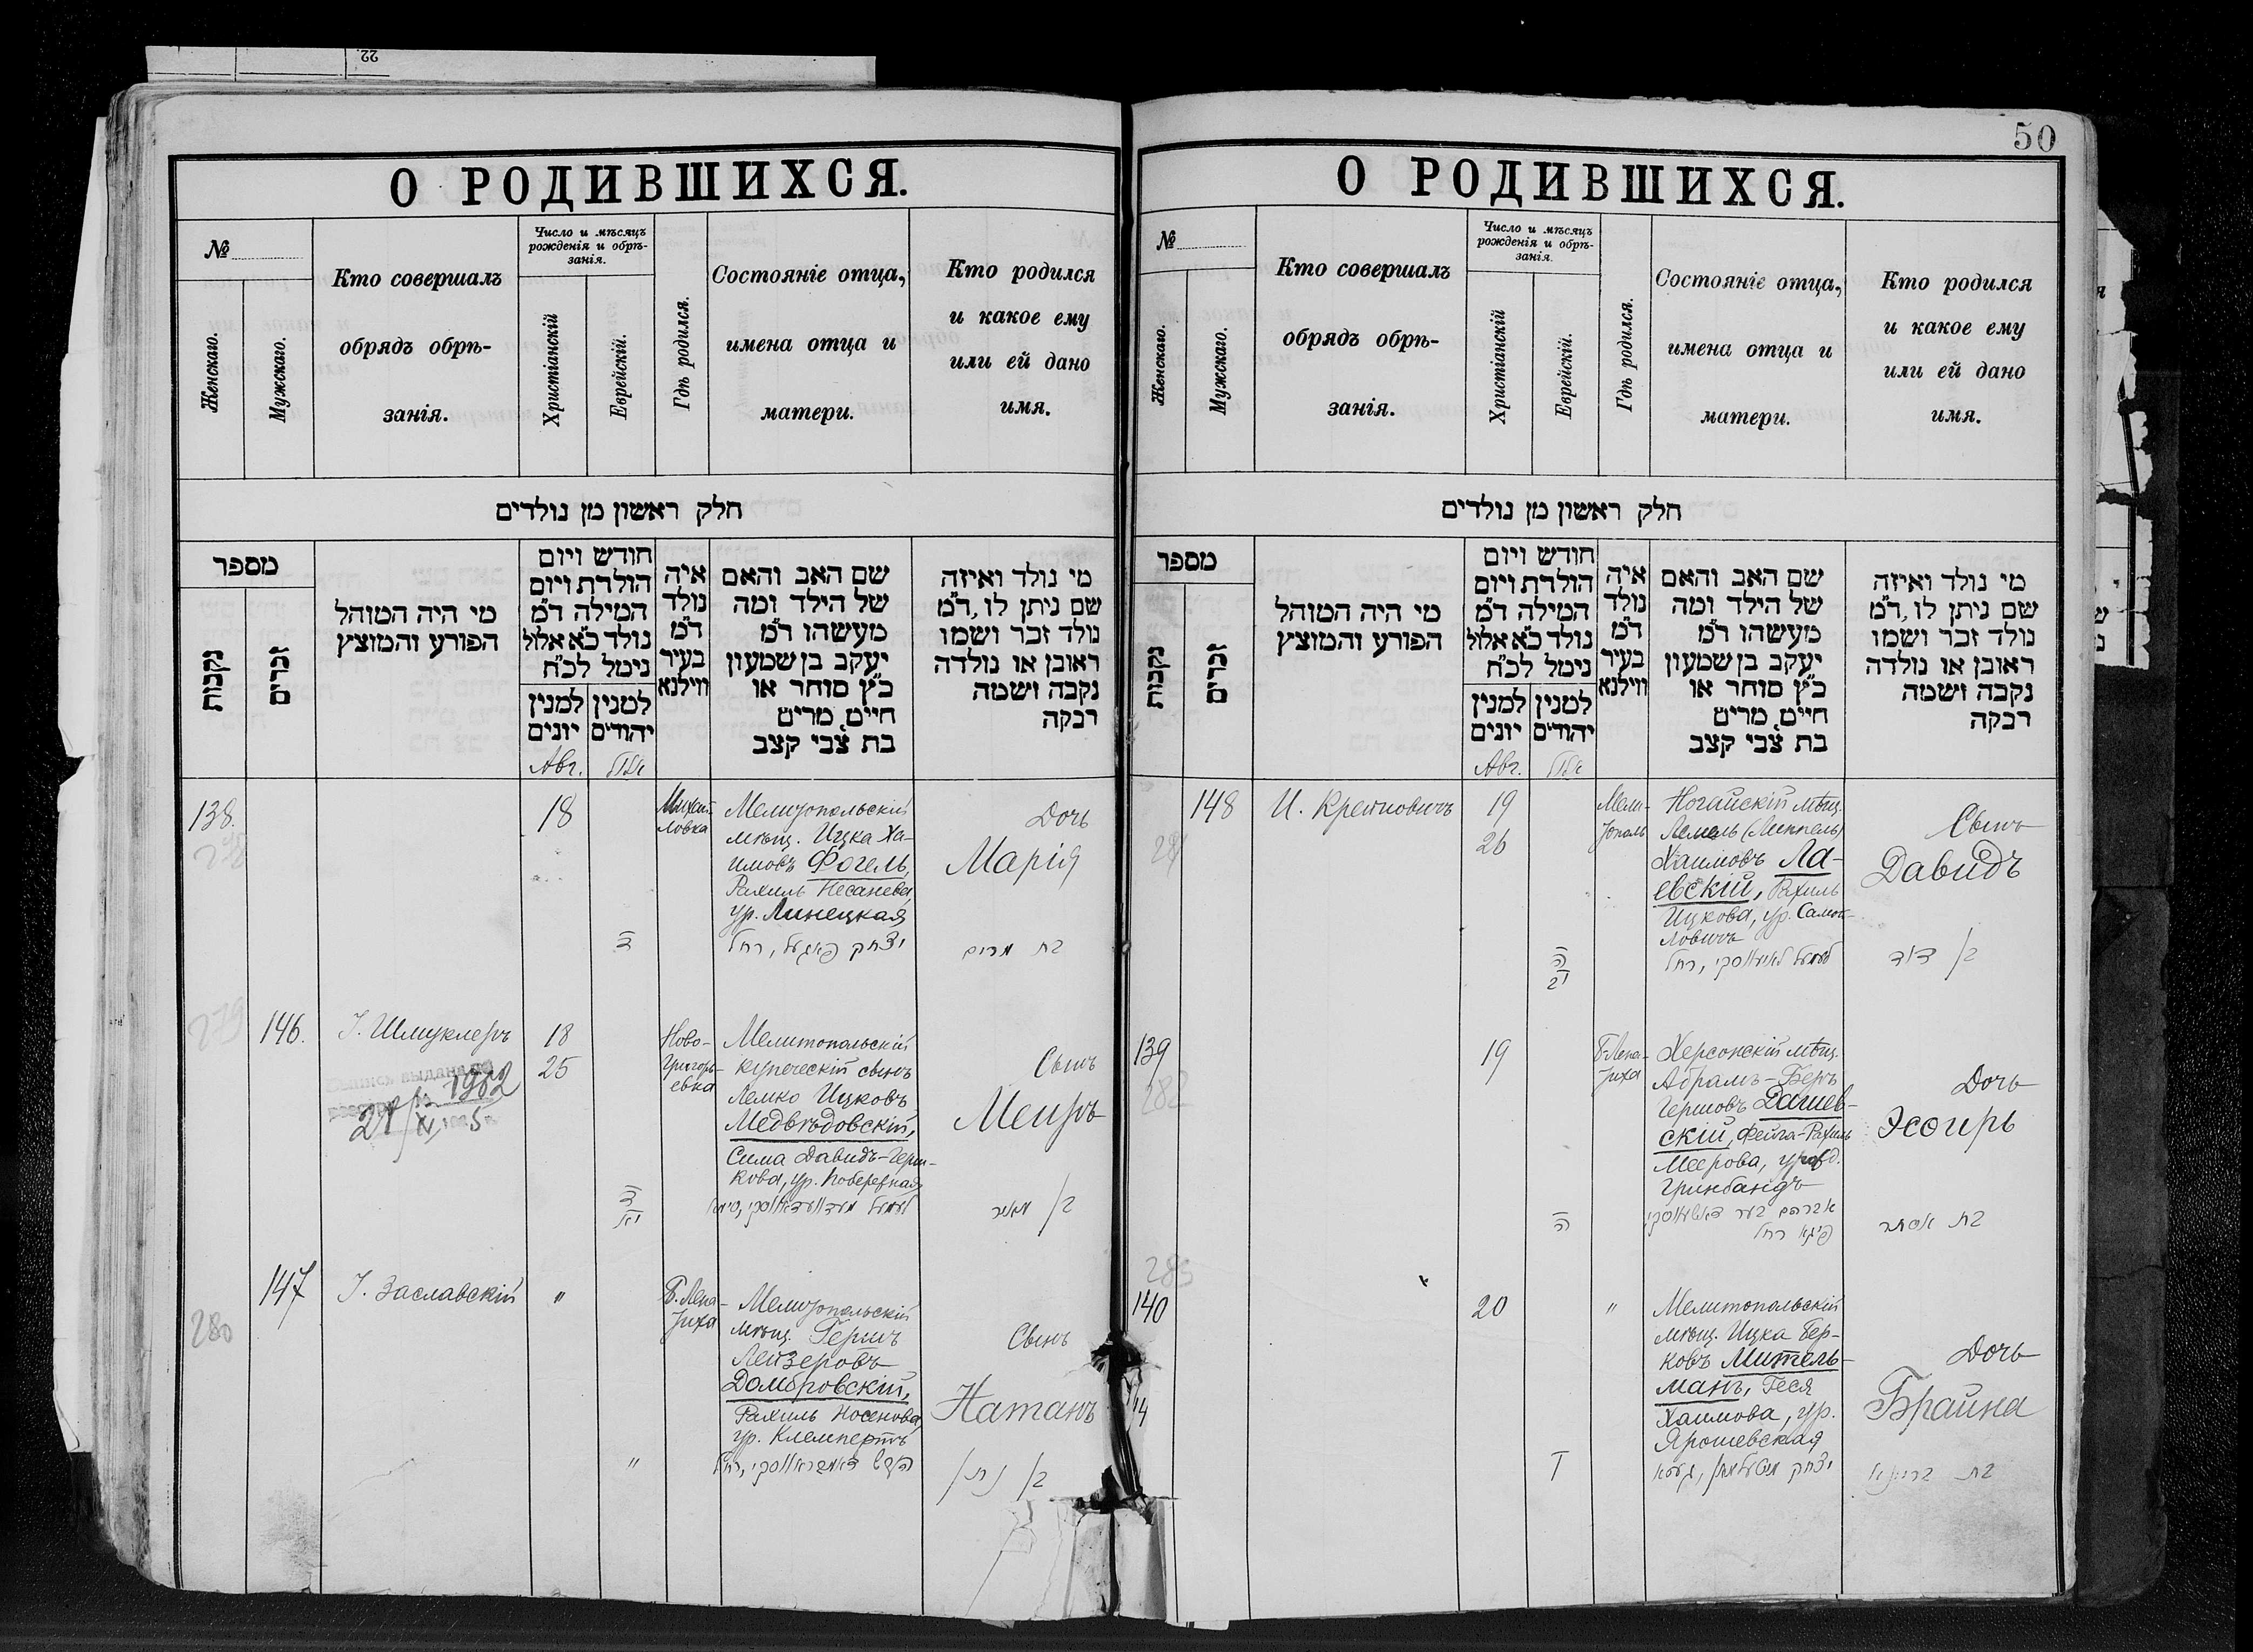 22
50
О РОДИВШИХСЯ.
№
Женскаго.
Мужскаго.
Кто совершалъ
обрядъ обрѣ-
занія.
Число и мѣсяцъ
рожденія и обрѣ-
занія.
Христіанскій
Еврейскій.
Гдѣ родился.
Состояніе отца,
имена отца и
матери.
Кто родился
и какое ему
или ей дано
имя.
חלק ראשון מן נולדים
מספר
נקבות
זכרים
מי היה המוהל
הפורע והמוצץ
חודש ויום
הולדת ויום
המילה ד״מ
נולד כ״א אלול
נימל לכ״ח
למנין
יונים
למנין
יהודים
איה
נולד
ד״מ
בעיר
ווילנא
שם האב והאם
של הילד ומה
מעשהו ד״מ
יעקב בן שמעון
כ״ץ סוחר או
חיים, מרים
בת צבי קצב
מי נולד ואיזה
שם ניתן לו, ד״מ
נולד זכר ושמו
ראובן או נולדה
נקבה ושמה
רבקה
Авг.
אלול
138.
18
Михай-
ловка
Мелитопольскій
мѣщ. Ицка Ха-
имовъ Фогель,
Рахиль Несанева,
ур. Линецкая
Дочь
Марія
ד
יצחק פאגעל, רחל
בת מרים
279
146.
І. Шмуклеръ
18
25
Ново-
Григорь-
евка
Мелитопольскій
купеческій сынъ
Лемко Ицковъ
Медвѣдовскій,
Сима Давидъ-Герш-
кова, ур. Побережная
Сынъ
Меиръ
1982
ד
יא
בן מאיר
280
147
І. Заславскій
"
Б. Лепа-
тиха
Мелитопольскій
мѣщ. Гершъ
Лейзеровъ
Домбровскій,
Рахиль Носенова,
ур. Клемпертъ
Сынъ
Натанъ
"
הערש דאמבראווסקי, רחל
בן נתן
О РОДИВШИХСЯ.
№
Женскаго.
Мужскаго.
Кто совершалъ
обрядъ обрѣ-
занія.
Число и мѣсяцъ
рожденія и обрѣ-
занія.
Христіанскій
Еврейскій.
Гдѣ родился.
Состояніе отца,
имена отца и
матери.
Кто родился
и какое ему
или ей дано
имя.
חלק ראשון מן נולדים
מספר
נקבות
זכרים
מי היה המוהל
הפורע והמוצץ
חודש ויום
הולדת ויום
המילה ד״מ
נולד כ״א אלול
נימל לכ״ח
למנין
יונים
למנין
יהודים
איה
נולד
ד״מ
בעיר
ווילנא
שם האב והאם
של הילד ומה
מעשהו ד״מ
יעקב בן שמעון
כ״ץ סוחר או
חיים, מרים
בת צבי קצב
מי נולד ואיזה
שם ניתן לו, ד״מ
נולד זכר ושמו
ראובן או נולדה
נקבה ושמה
רבקה
Авг.
אלול
148
19
26
Мели-
тополь
Ногайскій мѣщ.
Лемель (Липпель)
Хаимовъ Ла-
евскій, Рахиль
Ицкова, ур. Самой-
ловичъ
Сынъ
Давидъ
ה
יב
בן דוד
139
282
19
Б. Лепа-
тиха
Херсонскій мѣщ.
Абрамъ-Беръ
Гершовъ Дашев-
скій, Фейга-Рахиль
Меерова, урожд.
Гринбандъ
Дочь
Эсѳирь
ה
אברהם בער דאשעווסקי
פייגא רחל
בת אסתר
283
140
20
"
Мелитопольскій
мѣщ. Ицка Бер-
ковъ Митель-
манъ, Геся
Хаимова, ур.
Ярошевская
Дочь
Брайна
ו
יצחק מיטעלמאן, געסא
בת בריינא